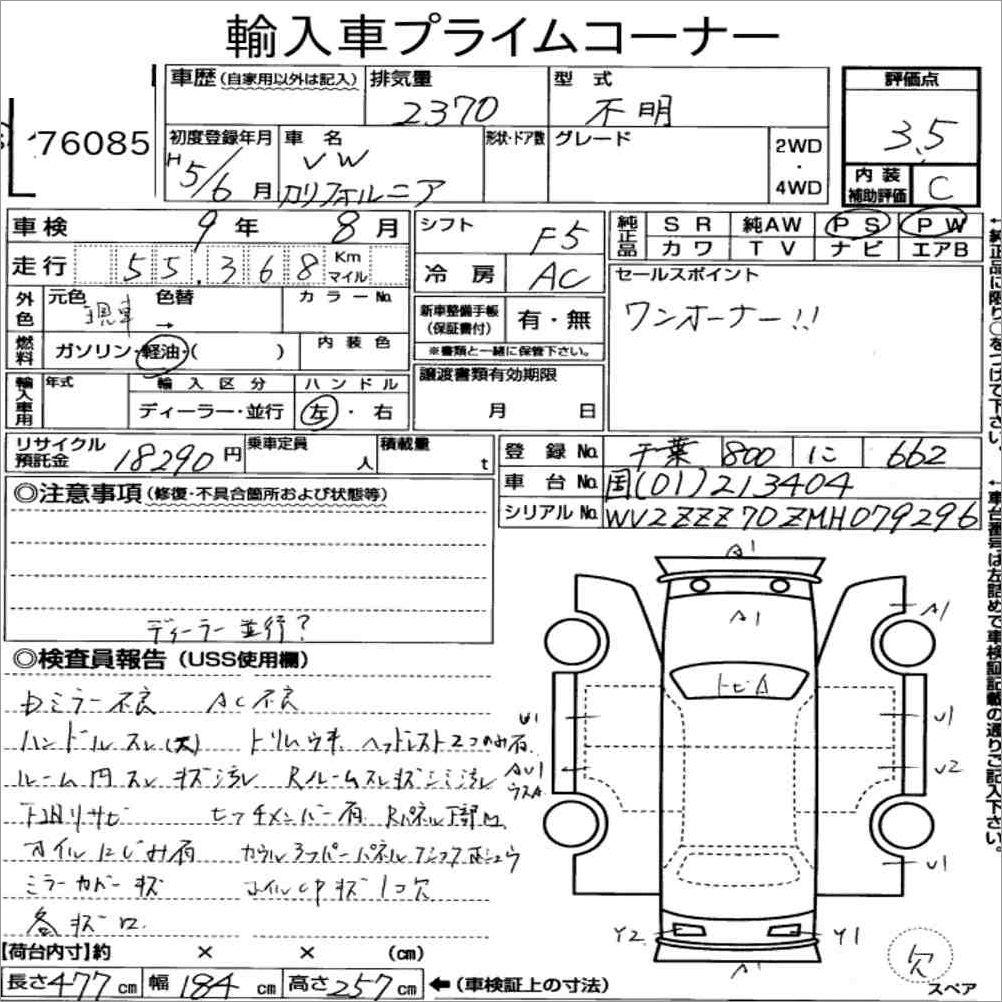 輸入車プライムコーナー
76085
車歴(自家用以外は記入) 排気量 2370 型式 不明 評価点 3.5
初度登録年月 H5/6月 車名 VW カリフォルニア 形状・ドア数 グレード 2WD・4WD 内装補助評価 C
車検 9年 8月 シフト F5 純正品 SR 純AW PS PW
カワ TV ナビ エアB
走行 55,368 Km マイル 冷房 AC セールスポイント
ワンオーナー!!
外色 元色 現車 → 色替 カラーNo. 新車整備手帳(保証書付) 有・無
※書類と一緒に保管下さい。
燃料 ガソリン・軽油・( ) 内装色
輸入車用 年式 輸入区分 ディーラー・並行 ハンドル 左・右 譲渡書類有効期限 月 日
リサイクル預託金 18290円 乗車定員 人 積載量 t
登録No. 千葉 800 に 662
車台No. 国(01)213404
シリアルNo. WV2ZZZ70ZMH079296
◎注意事項(修復・不具合箇所および状態等)
ディーラー並行?
◎検査員報告(USS使用欄)
Dミラー不良 AC不良
ハンドルスレ(大) トリムウキ ヘッドレスト2つのみ有
ルーム内スレキズ汚レ Rルームスレキズシミ汚レ
下廻りサビ ヒッチメンバー有 Rパネル下部凹
オイルにじみ有
ミラーカバーキズ ホイルCPキズ1コ欠
各キズ凹
【荷台内寸】約 × × (cm)
長さ477cm 幅184cm 高さ257cm ←(車検証上の寸法)
A1
A1
A1
トビA
U1
U1
AU1
ウスA
U2
U1
Y2
Y1
A1
欠
スペア
←純正品に限り○をつけて下さい。
←車台番号は左詰めで車検証記載の通りご記入下さい。